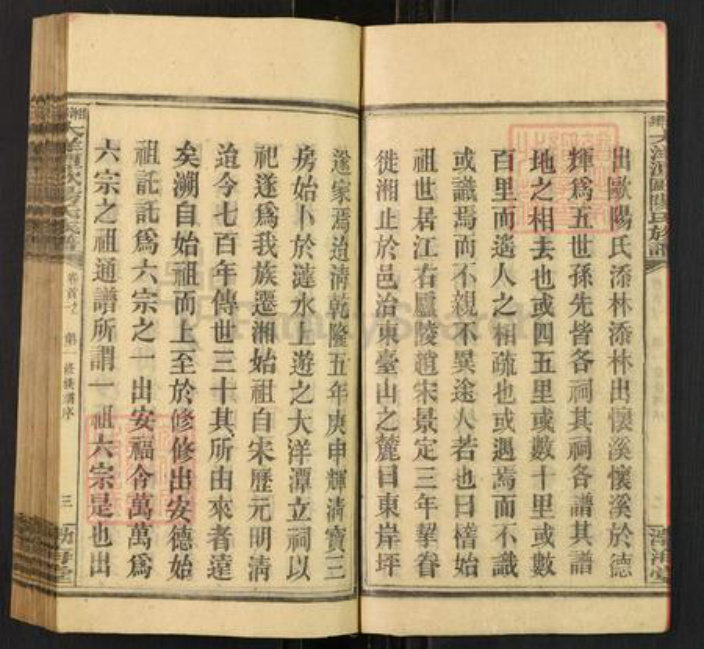 出歐陽氏添林添林出懷溪懷溪於德
輝爲五世孫先皆各祠其祠各譜其譜
地之相去也或四五里或數十里或數
百里而遙人之相疏也或遇焉而不識
或識焉而不親不異途人若也曰稽始
祖世居江右廬陵道宋景定三年挈眷
徙湘止於邑治東臺山之麓曰東岸坪
遂家焉迨淸乾隆五年庚申輝淸寶三
房始卜於漣水上遊之大洋潭立祠以
祀遂爲我族遷湘始祖自宋歷元明淸
迨今七百年傳世三十其所由來者遠
矣溯自始祖而上至於修修出安德始
祖託託爲六宗之一出安福令萬萬爲
六宗之祖通譜所謂一祖六宗是也出
湘大洋潭歐陽氏族譜
卷首之
第一修族譜序
三
渤海堂
大洋潭歐陽氏族譜
二
渤海堂
FamilySearch